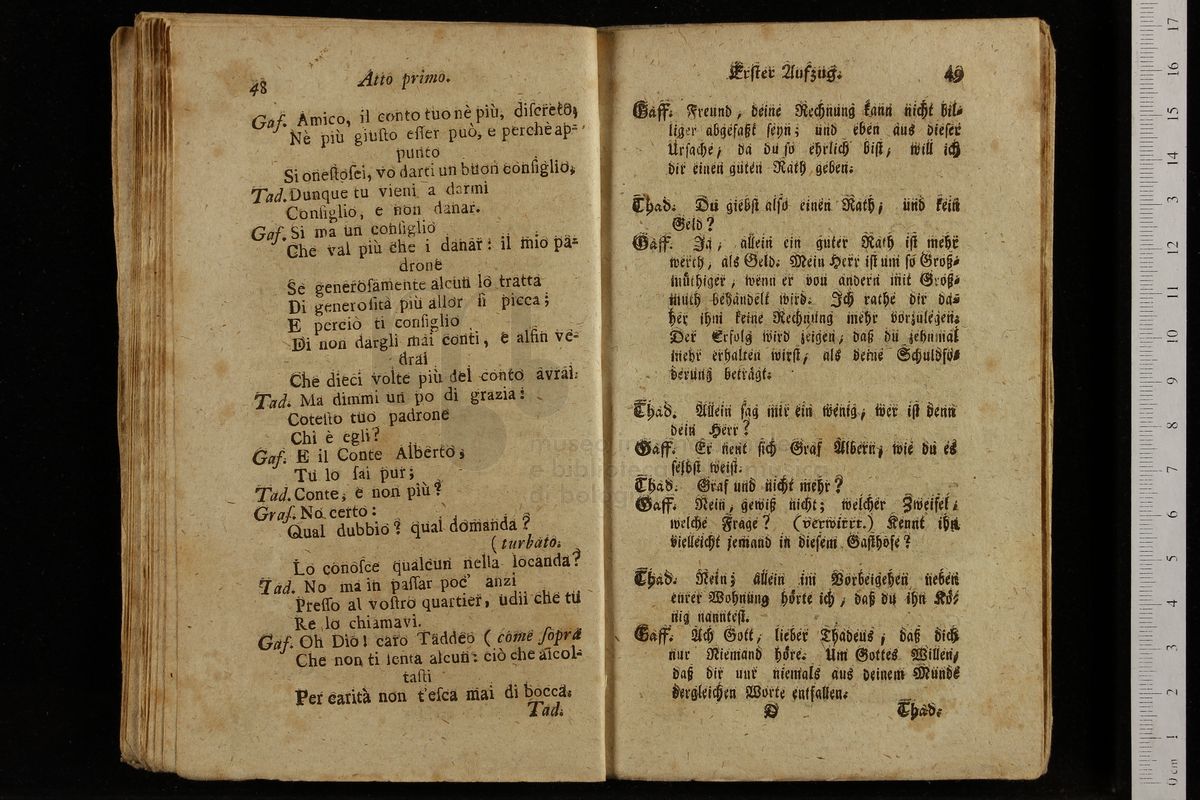 48 Atto primo.
Gaf. Amico, il conto tuo nè più, discreto,
Nè più giuſto eſſer può, e perchè ap-
punto
Si oneſto ſei, vo darti un buon conſiglio,
Tad. Dunque tu vieni a darmi
Conſiglio, e non danar.
Gaf. Si ma un conſiglio
Che val più che i danar: il mio pa-
drone
Se generoſamente alcun lo tratta
Di generoſità più allor ſi picca;
E perciò ti conſiglio
Di non dargli mai conti, e alfin ve-
drai
Che dieci volte più del conto avrai.
Tad. Ma dimmi un po di grazia:
Coteſto tuo padrone
Chi è egli?
Gaf. E il Conte Alberto,
Tu lo ſai pur;
Tad. Conte, e non più?
Graf. No certo:
Qual dubbio? qual domanda?
(turbato.
Lo conoſce qualcun nella locanda?
Tad. No ma in paſſar poc' anzi
Preſſo al voſtro quartier, udii che tu
Re lo chiamavi.
Gaf. Oh Dio! caro Taddeo (come ſopra
Che non ti ſenta alcun: ciò che aſcol-
taſti
Per carità non t'eſca mai di bocca.
Tad.
Erſter Aufzug. 49
Gaff. Freund, deine Rechnung kann nicht bil-
liger abgefaßt ſeyn; und eben aus dieſer
Urſache, da du ſo ehrlich biſt, will ich
dir einen guten Rath geben.
Thad. Du giebſt alſo einen Rath, und kein
Geld?
Gaff. Ja, allein ein guter Rath iſt mehr
werth, als Geld. Mein Herr iſt um ſo Groß-
müthiger, wenn er von andern mit Groß-
muth behandelt wird. Ich rathe dir da-
her ihm keine Rechnung mehr vorzulegen.
Der Erfolg wird zeigen, daß du zehnmal
mehr erhalten wirſt, als deine Schuldfo-
derung beträgt.
Thad. Allein ſag mir ein wenig, wer iſt denn
dein Herr?
Gaff. Er nent ſich Graf Albern, wie du es
ſelbſt weiſt.
Thad. Graf und nicht mehr?
Gaff. Nein, gewiß nicht; welcher Zweifel,
welche Frage? (verwirrt.) Kennt ihn
vielleicht jemand in dieſem Gaſthofe?
Thad. Nein; allein im Vorbeigehen neben
eurer Wohnung hörte ich, daß du ihn Kö-
nig nannteſt.
Gaff. Ach Gott, lieber Thadeus, daß dich
nur Niemand höre. Um Gottes Willen,
daß dir nur niemals aus deinem Munde
dergleichen Worte entfallen.
D Thad.